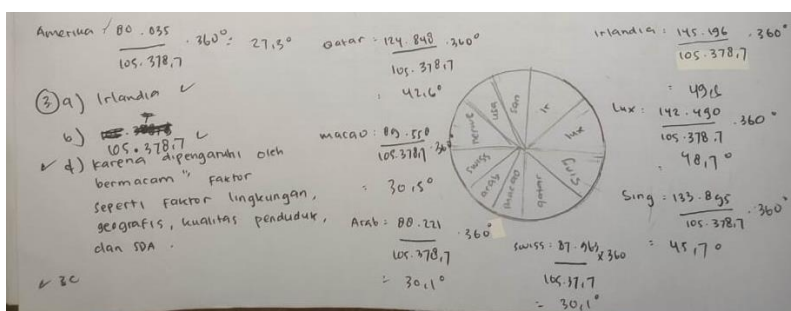 Amerika : 80.035 . 360° = 27,3°
105.378,7
③ a) Irlandia ✓
b)
105.378,7 ✓
✓ d) karena dipengaruhi oleh
bermacam" faktor
seperti faktor lingkungan,
geografis, kualitas penduduk,
dan SDA.
✓ 3C
Qatar : 124.848 . 360°
105.378,7
: 42,6°
macao : 89.558 . 360°
105.378,7
= 30,5°
Arab : 88.221 . 360°
105.378,7
= 30,1°
norwe
usa
san
Ir
lux
Sing
qatar
macao
arab
swiss
swiss : 87.963 x 360
105.37,7
= 30,1°
Irlandia : 145.196 . 360°
105.378,7
= 49,6
Lux : 142.490 . 360°
105.378.7
= 48,7°
Sing : 133.895 . 360°
105.378,7
= 45,7°